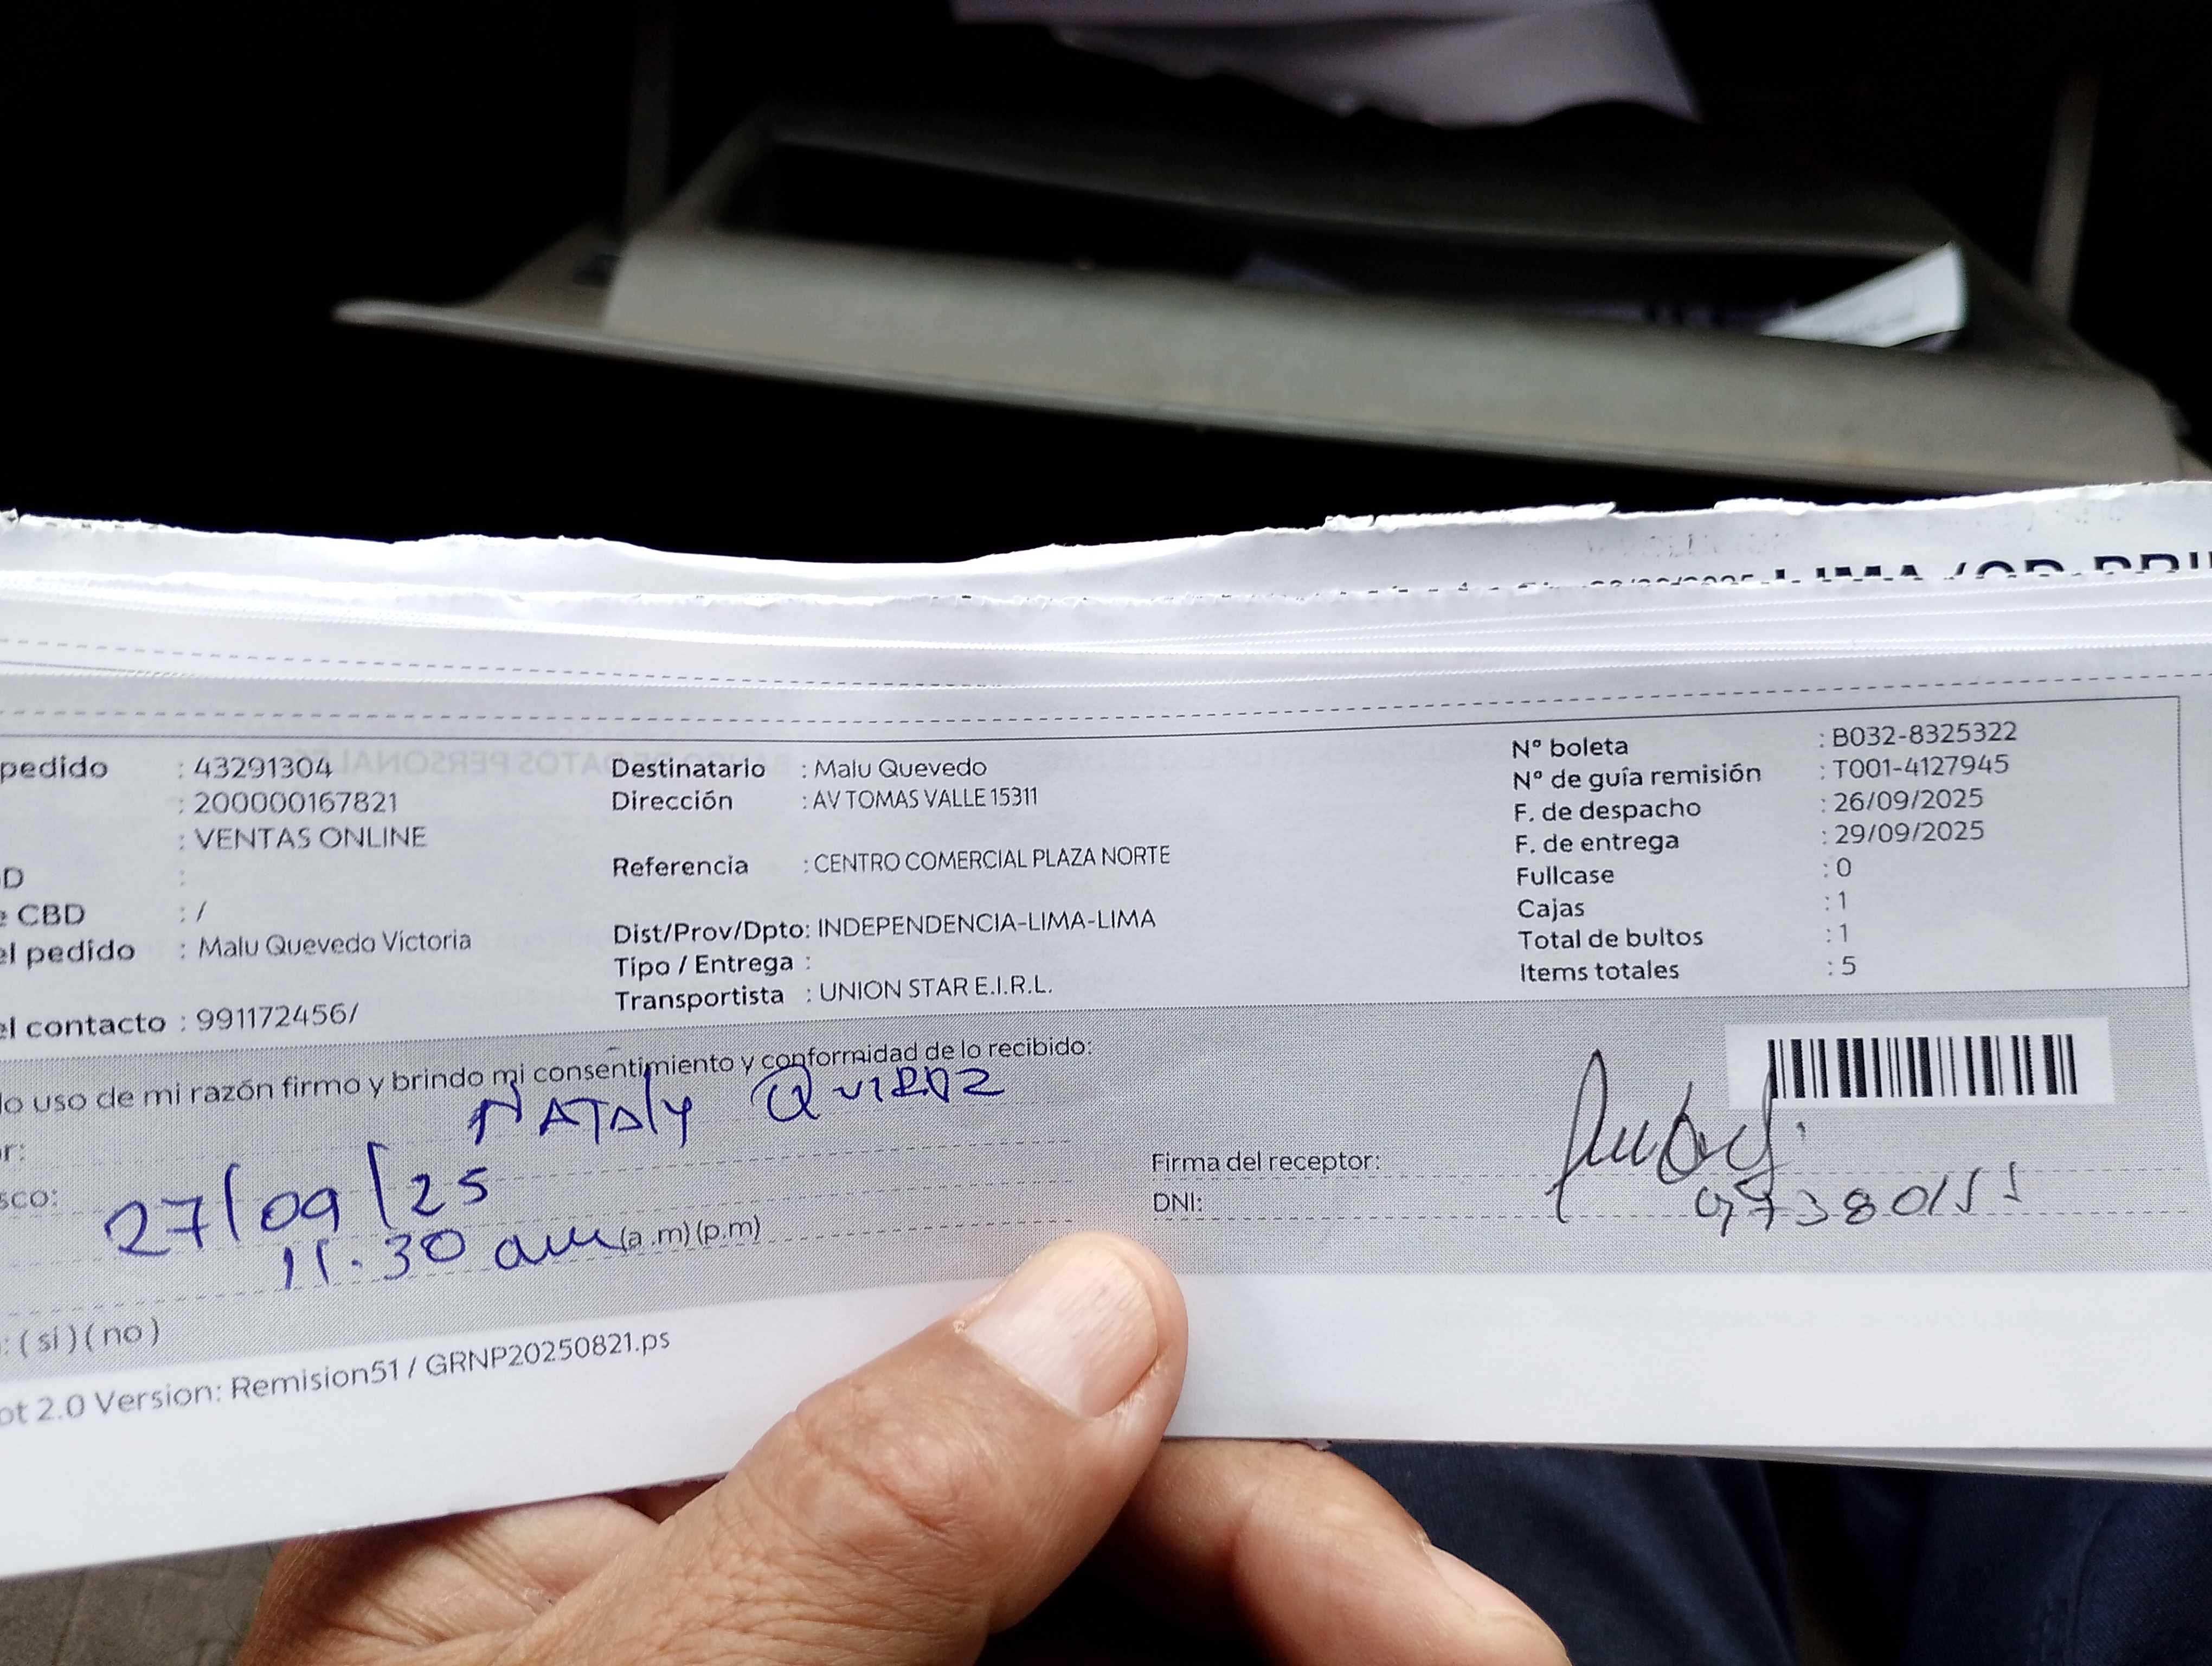 pedido : 43291304
: 200000167821
: VENTAS ONLINE
D :
CBD : /
el pedido : Malu Quevedo Victoria
el contacto : 991172456/
Destinatario : Malu Quevedo
Dirección : AV TOMAS VALLE 15311
Referencia : CENTRO COMERCIAL PLAZA NORTE
Dist/Prov/Dpto: INDEPENDENCIA-LIMA-LIMA
Tipo / Entrega :
Transportista : UNION STAR E.I.R.L.
Nº boleta : B032-8325322
Nº de guía remisión : T001-4127945
F. de despacho : 26/09/2025
F. de entrega : 29/09/2025
Fullcase : 0
Cajas : 1
Total de bultos : 1
Items totales : 5
uso de mi razón firmo y brindo mi consentimiento y conformidad de lo recibido:
NATALY QUIROZ
27/09/25
11.30 am (a.m) (p.m)
Firma del receptor:
DNI:
: ( sí ) ( no )
2.0 Version: Remision51 / GRNP20250821.ps